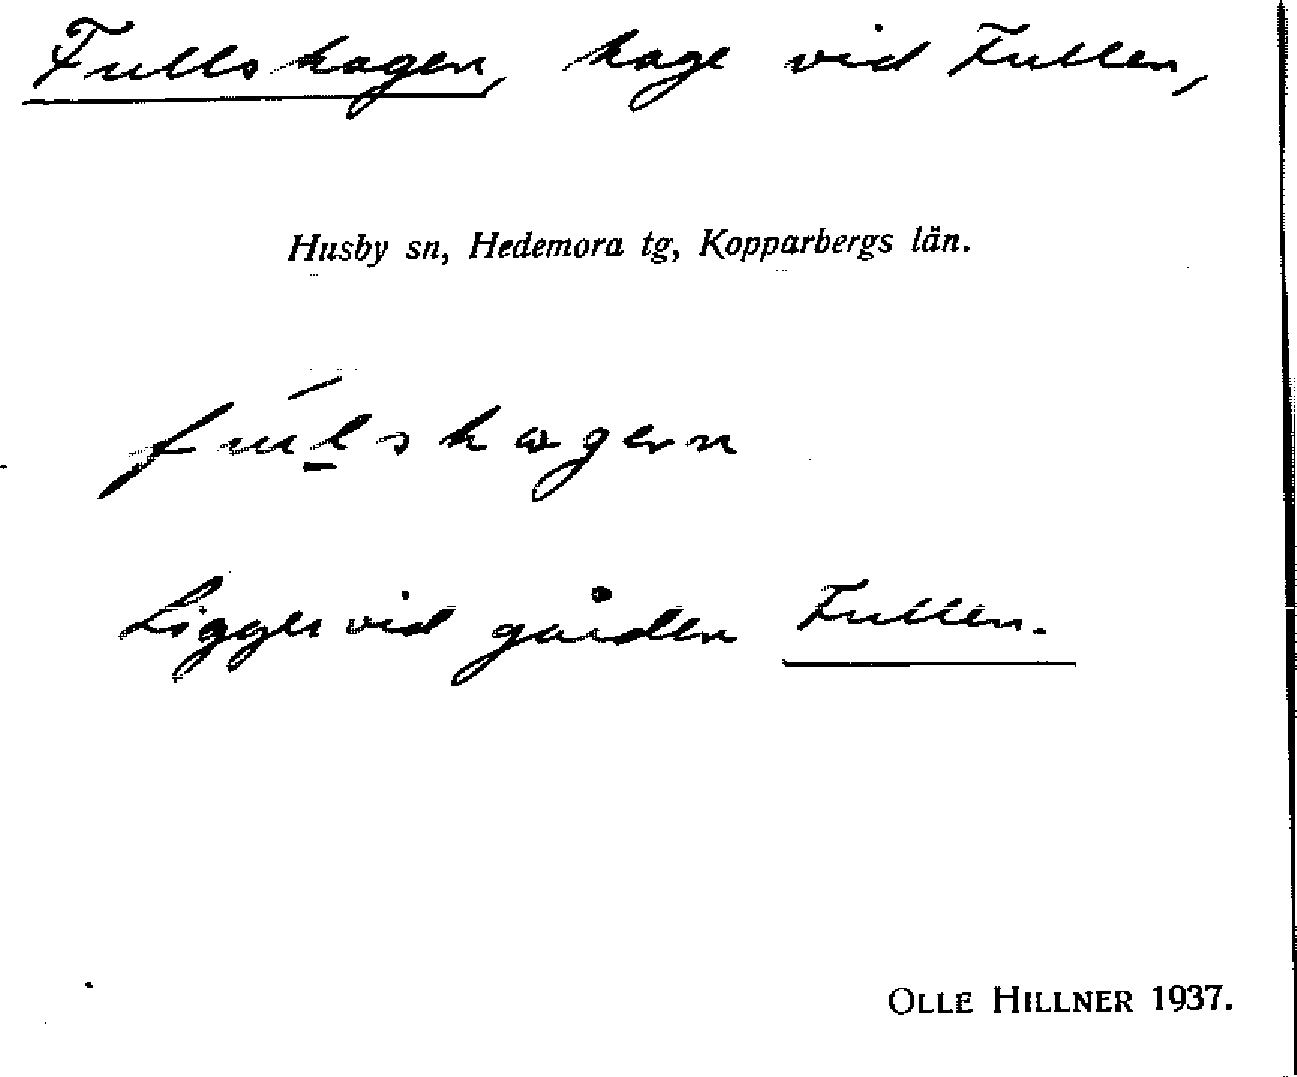 Fullshagen, hage vid Fullen,
Husby sn, Hedemora tg, Kopparbergs län.
Ligger vid gården Fullen.
OLLE HILLNER 1937.